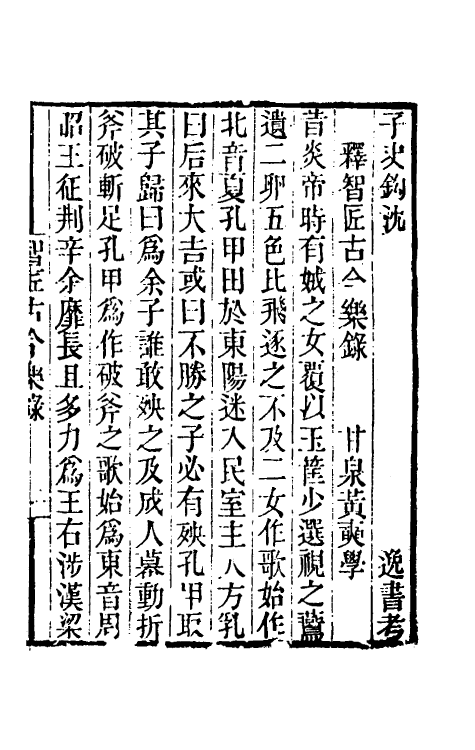 子史鈎沈　逸書考
釋智匠古今樂錄　甘泉黃奭學
昔炎帝時有娀之女覆以玉筐少選視之鷰
遺二卵五色比飛逐之不及二女作歌始作
北音夏孔甲田於東陽迷入民室主人方乳
曰后來大吉或曰不勝之子必有殃孔甲取
其子歸曰爲余子誰敢殃之及成人幕動折
斧破斬足孔甲爲作破斧之歌始爲東音周
昭王征荆辛余靡長且多力爲王右涉漢梁
智匠古今樂錄　一